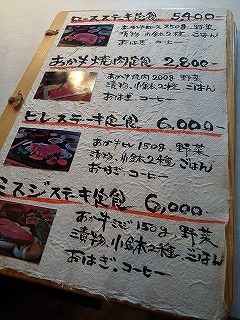 ロースステキ定食 5,900-
あか牛ロース 250g 野菜
漬物、小鉢2種、ごはん
おはぎ、コーヒー
あか牛焼肉定食 2,800-
あか牛焼肉 200g 野菜
漬物、小鉢2種 ごはん
おはぎ、コーヒー
ヒレステーキ定食 6,000-
あか牛ヒレ 150g 野菜
漬物、小鉢2種、ごはん
おはぎ・コーヒー
ミスジステーキ定食 6,000-
あか牛ミスジ 150g 野菜
漬物、小鉢2種、ごはん
おはぎ・コーヒー